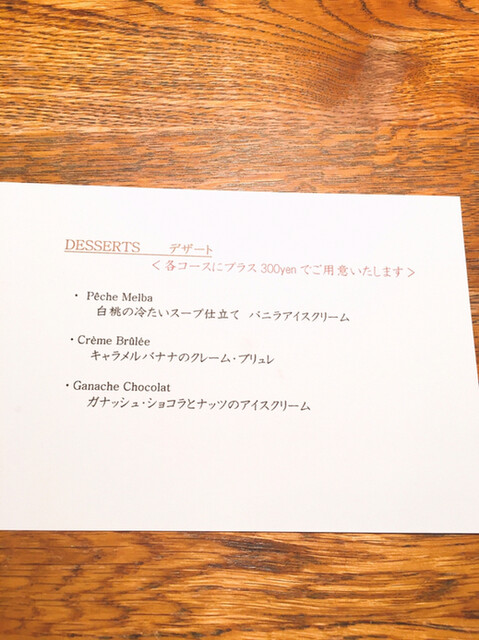 DESSERTS　デザート
＜各コースにプラス300yenでご用意いたします＞
・ Pêche Melba
白桃の冷たいスープ仕立て　バニラアイスクリーム
・Crème Brûlée
キャラメルバナナのクレーム・ブリュレ
・Ganache Chocolat
ガナッシュ・ショコラとナッツのアイスクリーム